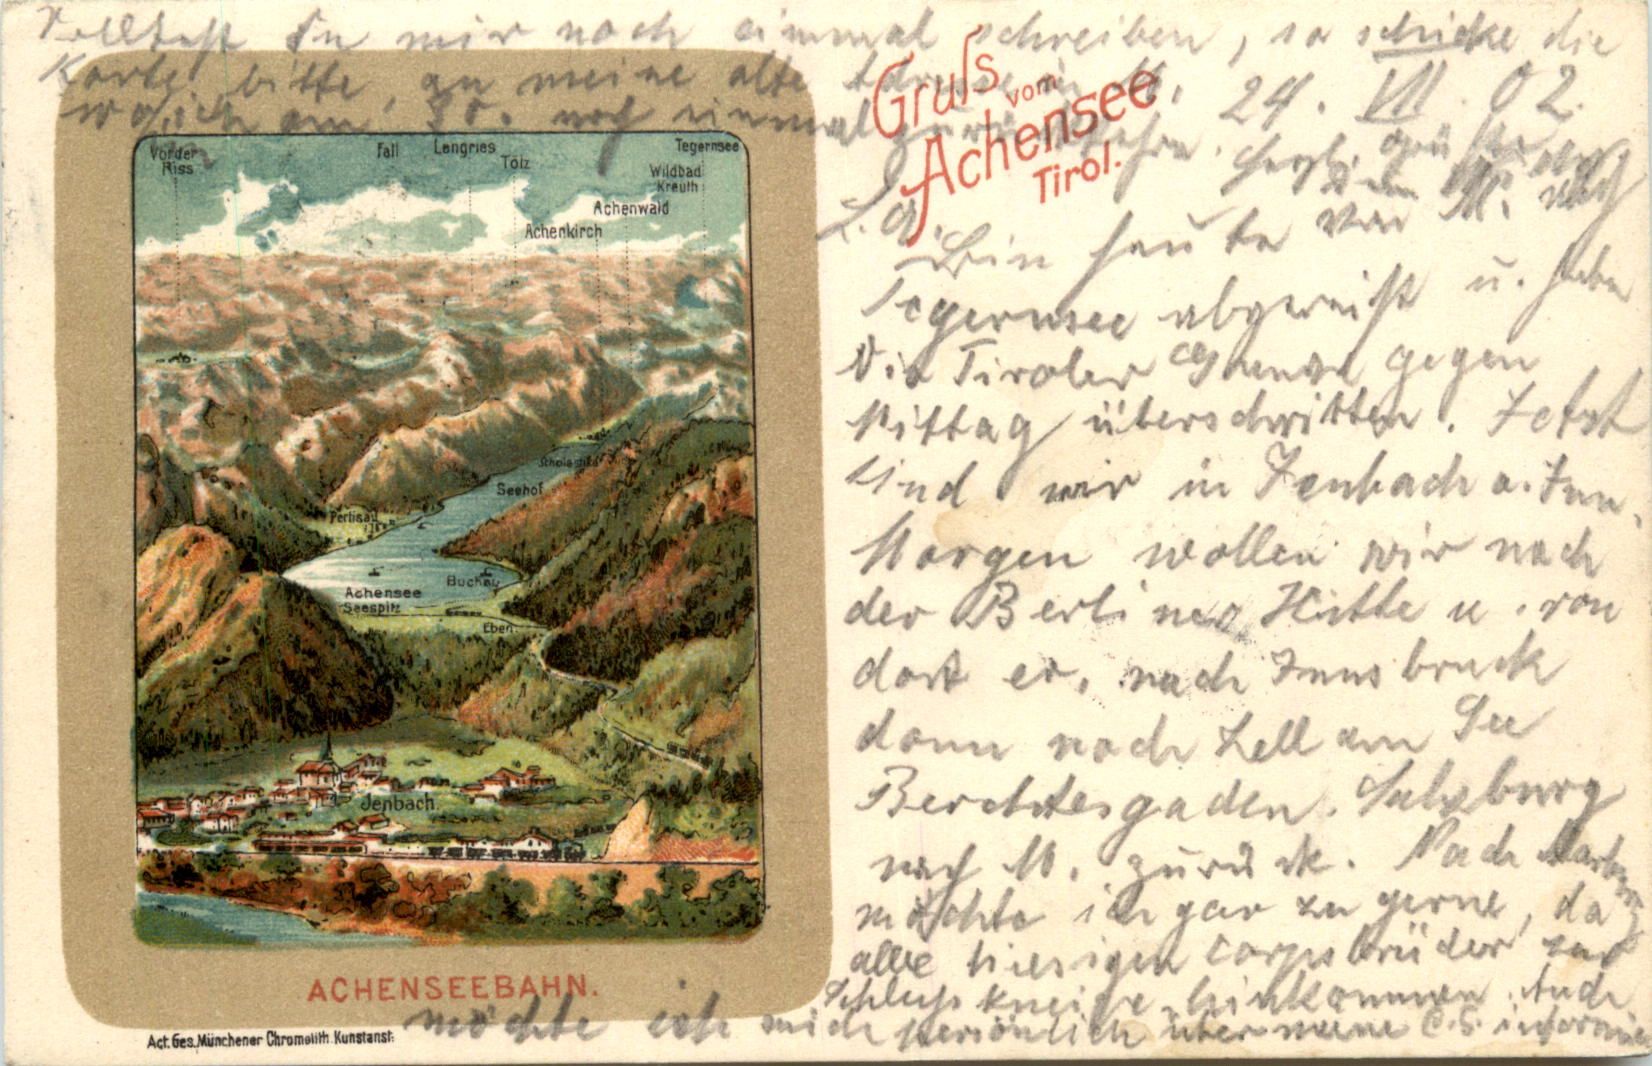 Solltest Du mir noch einmal schreiben, so schicke die
Karte bitte, an meine alte Adresse in M.
wo ich am 30. noch einmal
24. VII. 02.
Gruſs vom
Achensee
Tirol.
L. A.
Bin heute von M. nach
Tegernsee abgereist u. habe
die Tiroler Grenze gegen
Mittag überschritten. Jetzt
sind wir in Jenbach a. Inn.
Morgen wollen wir nach
der Berliner Hütte u. von
dort er. nach Innsbruck
dann nach Zell am See
Berchtesgaden. Salzburg
nach M. zurück. Nach
möchte ich gar zu gerne, da
alle hiesigen Corpsbrüder zur
Schlußkneipe hinkommen. Auch
möchte ich mich persönlich über meine C. S. informie
Vorder Riss
Fall
Lengries
Tölz
Tegernsee
Wildbad Kreuth
Achenwald
Achenkirch
Scholastika
Seehof
Pertisau
Buchau
Achensee
Seespitz
Eben
Jenbach.
ACHENSEEBAHN.
Act. Ges. Münchener Chromolith. Kunstanst.